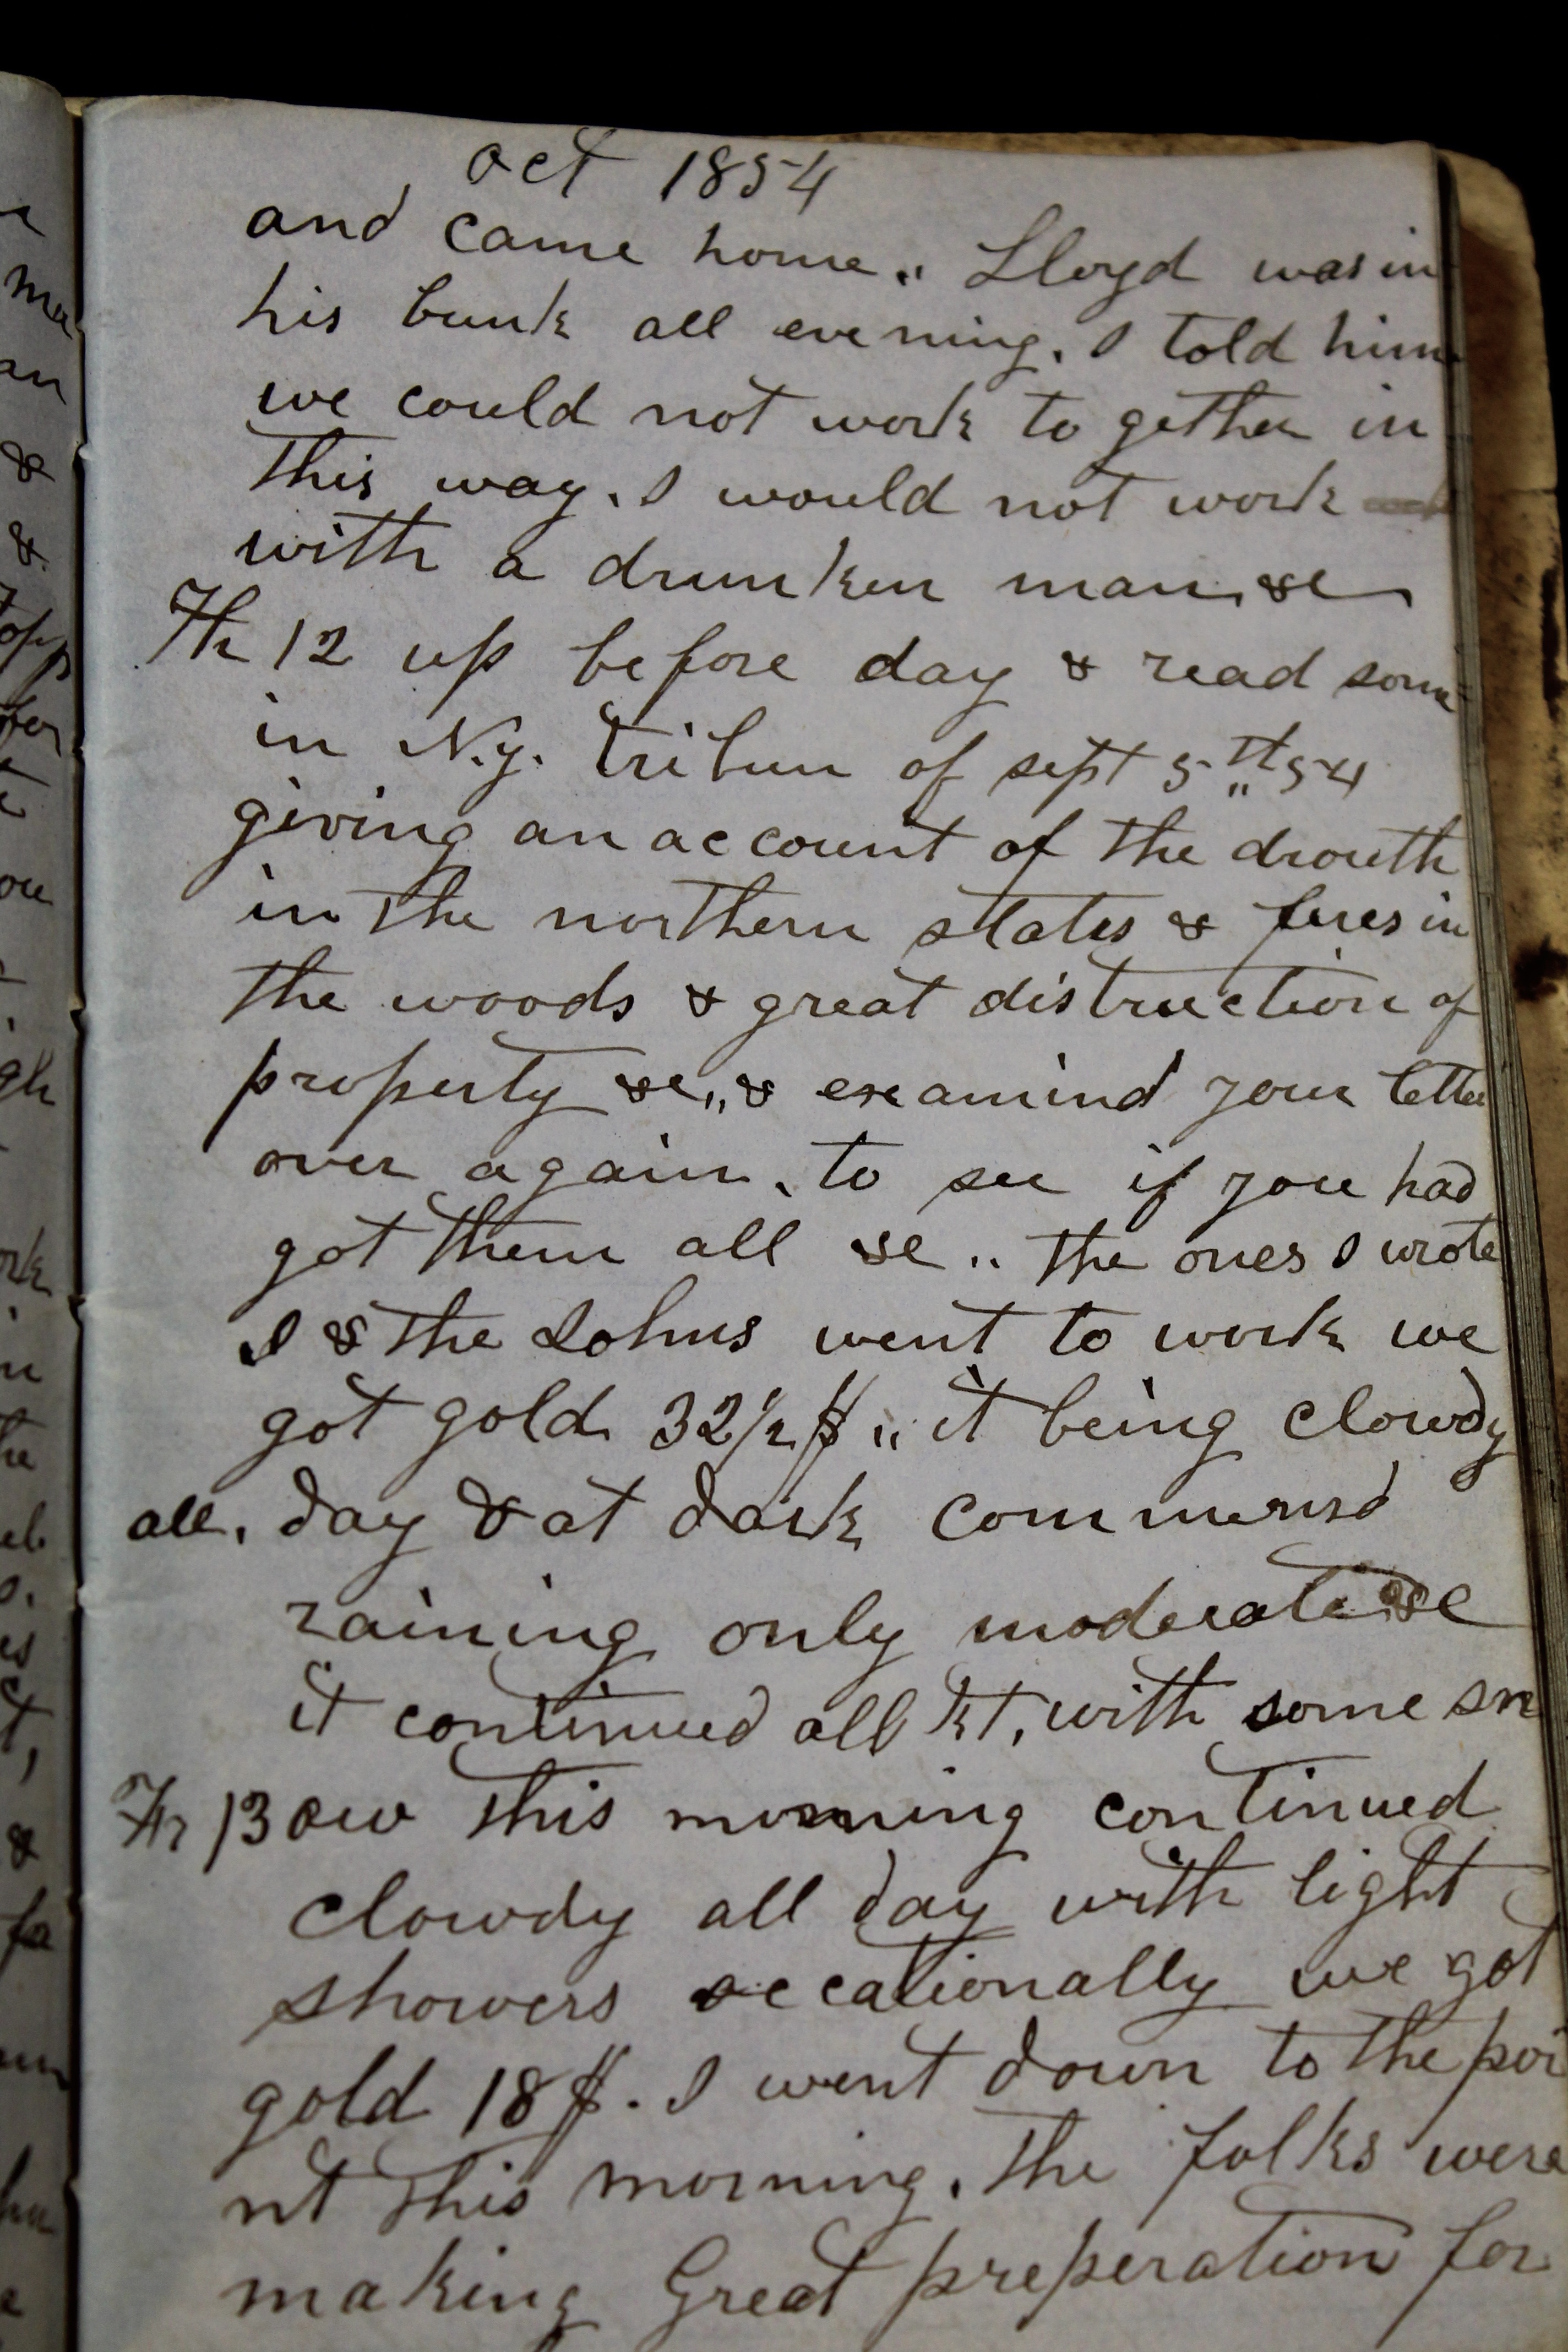 oct 1854
and came home.,, Lloyd was in
his bunk all evening. I told him
we could not work to gether in
this way. I would not work
with a drunken man. &c
Th 12 up before day & read som
in N.y. tribun of sept 5th,, 54
giving an account of the drouth
in the northern states & fires in
the woods & great distruction of
property &c,, & examind your letter
over again. to see if you had
got them all &c .. the ones I wrote
I & the Johns went to work we
got gold 32 1/2 $ ,, it being clowdy
all. day & at dark commensd
raining only moderate &c
it continued all nt, with some sn
Fr 13 ow this morning continued
clowdy all day with light
showers occationally we got
gold 18 $. I went down to the poi
nt this morning. the folks were
making Great preperation for